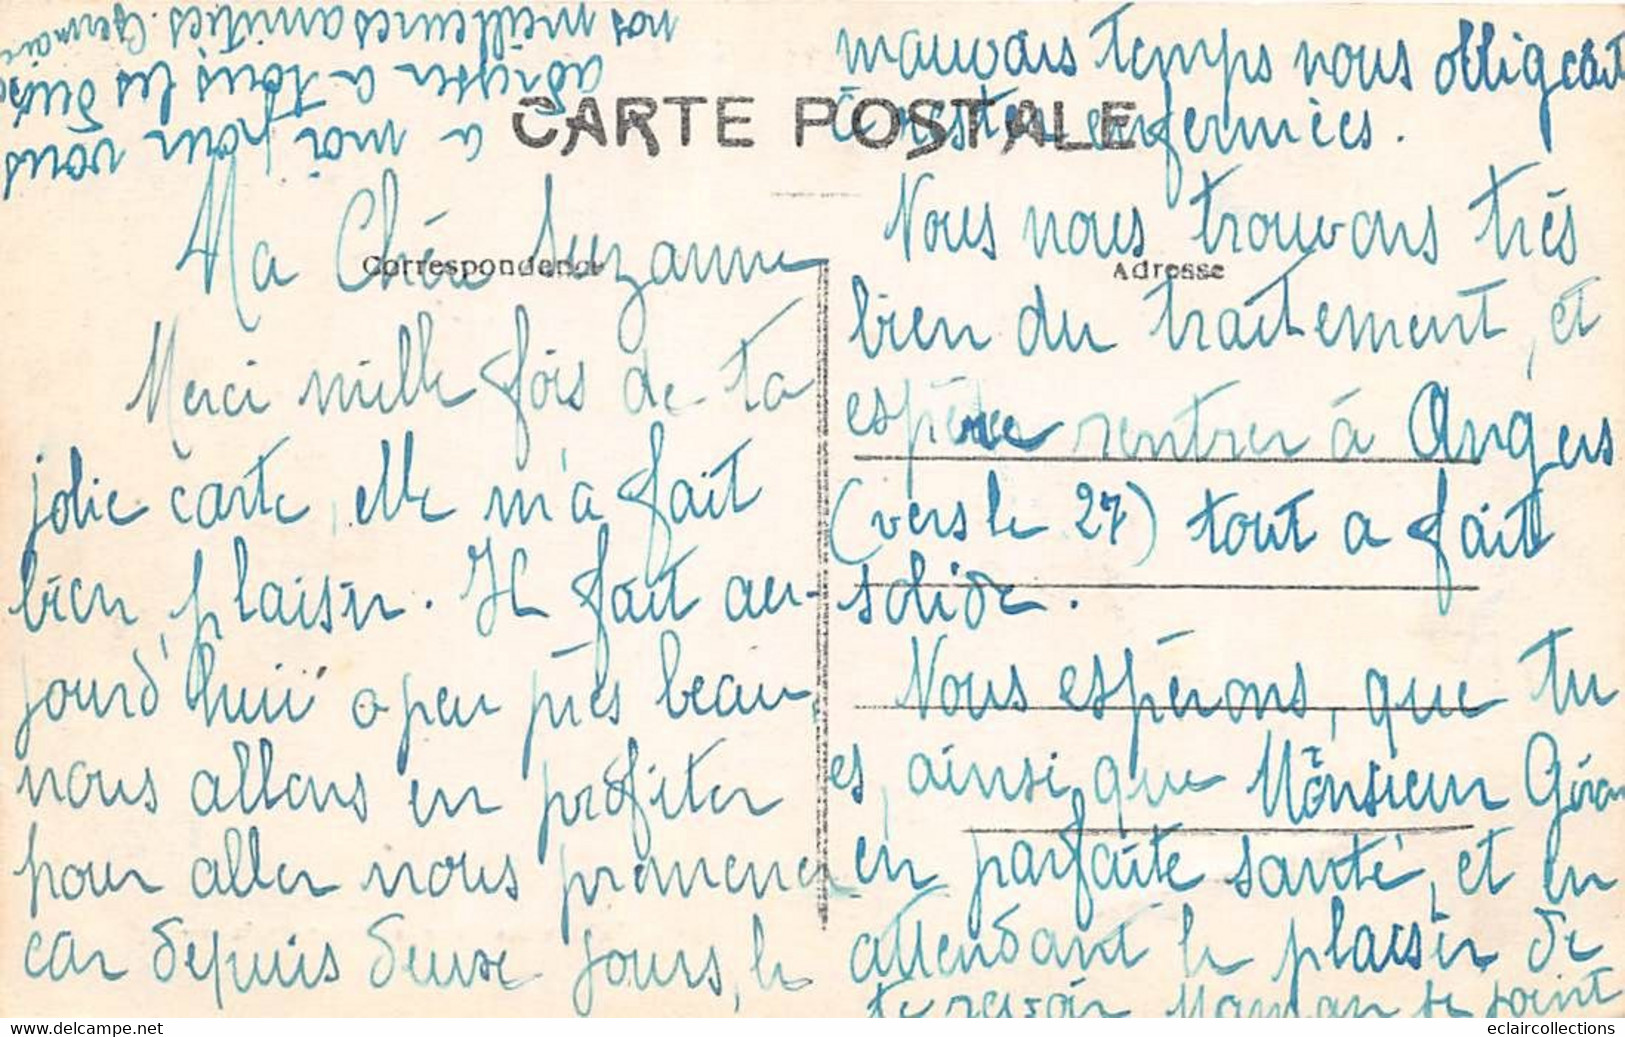 CARTE POSTALE
Correspondance
Adresse
Ma Chère Suzanne
Merci mille fois de ta
jolie carte, elle m'a fait
bien plaisir. Il fait au-
jourd'hui a peu près beau,
nous allons en profiter
pour aller nous promener
car depuis deux jours, le
mauvais temps nous obligeait
à rester enfermées.
Nous nous trouvons très
bien du traitement, et
espère rentrer à Angers
(vers le 27) tout a fait
solide.
Nous espérons, que tu
es, ainsi que Monsieur
en parfaite santé, et en
attendant le plaisir de
te revoir Maman se joint
a moi pour vous
a tous les deux
nos meilleures amitiés. Germaine
eclaircollections